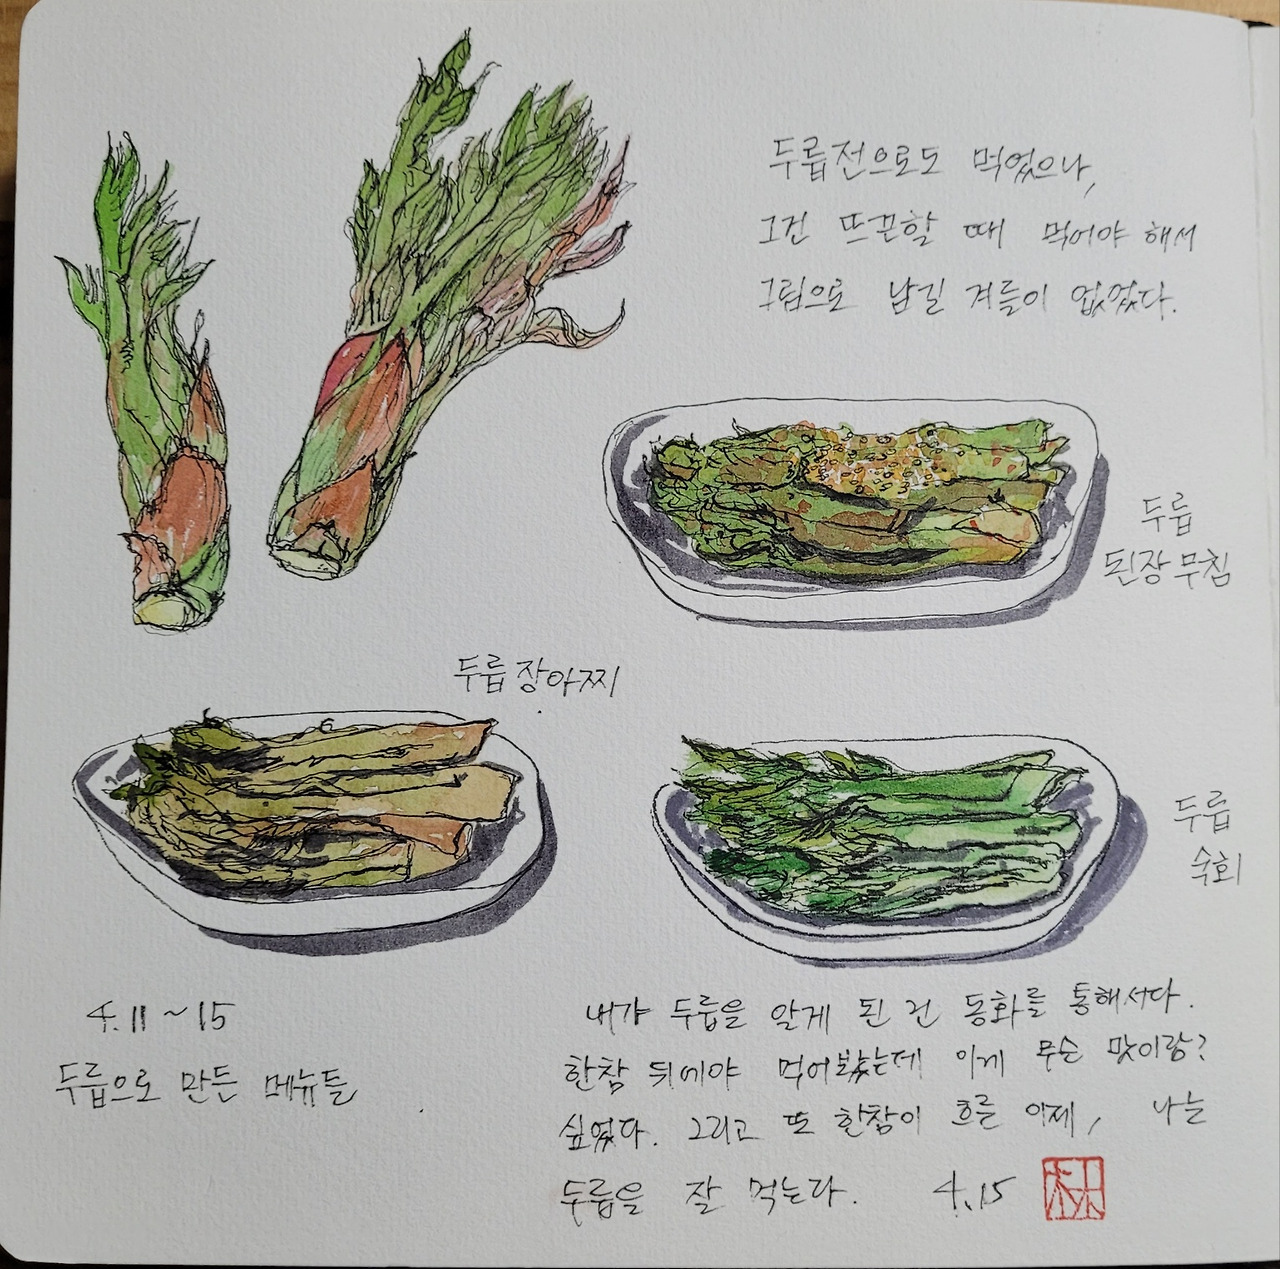 두릅전으로도 먹었으나,
그건 뜨끈할 때 먹어야 해서
그림으로 남길 겨를이 없었다.
두릅
된장무침
두릅장아찌
두릅
숙회
4.11~15
두릅으로 만든 메뉴들
내가 두릅을 알게 된 건 동화를 통해서다.
한참 뒤에야 먹어봤는데 이게 무슨 맛이람?
싶었다. 그리고 또 한참이 흐른 이제, 나는
두릅을 잘 먹는다. 4.15